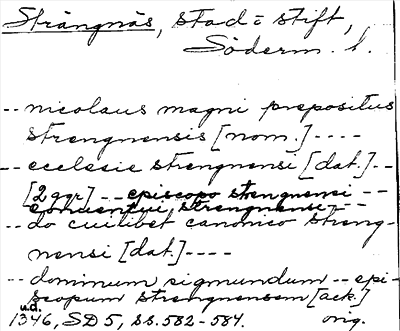 Strängnäs, stad o stift,
Söderm. l.
-- nicolaus magni prepositus
strengnensis [nom.] ----
-- ecclesie strengnensi [dat.] --
[2 ggr] -- episcopo strengnensi --
conuentui strengnensi --
-- do cuilibet canonico streng-
nensi [dat.] ----
-- dominum sigmundum -- epi-
scopum strengnensem [ack.]
u.d. 1346, SD 5, ss. 582-584. orig.